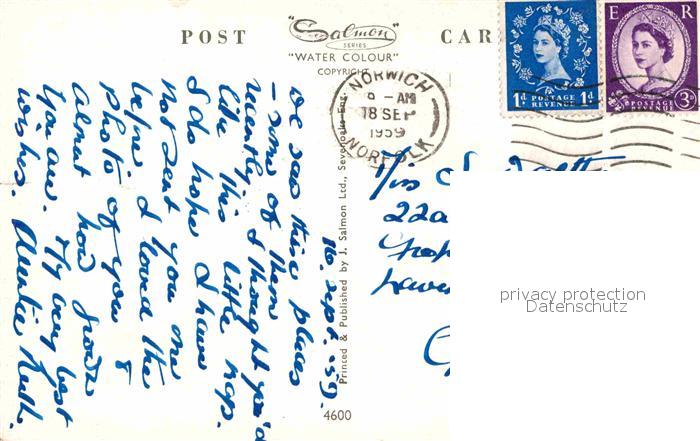 POST CARD
"Salmon
SERIES
"WATER COLOUR"
COPYRIGHT
E R
1D POSTAGE REVENUE 1D
POSTAGE REVENUE 3D
NORWICH
8 - AM
18 SEP
1959
NORFOLK
Printed & Published by J. Salmon Ltd., Sevenoaks Eng.
4600
16. Sept. 59.
We saw these places
– some of them
recently & thought you'd
like this little map.
I do hope I have
not sent you one
before. I loved the
photo of you &
almost how grown
you are. My very best
wishes. Auntie Ruth.
Miss
22a
privacy protection
Datenschutz